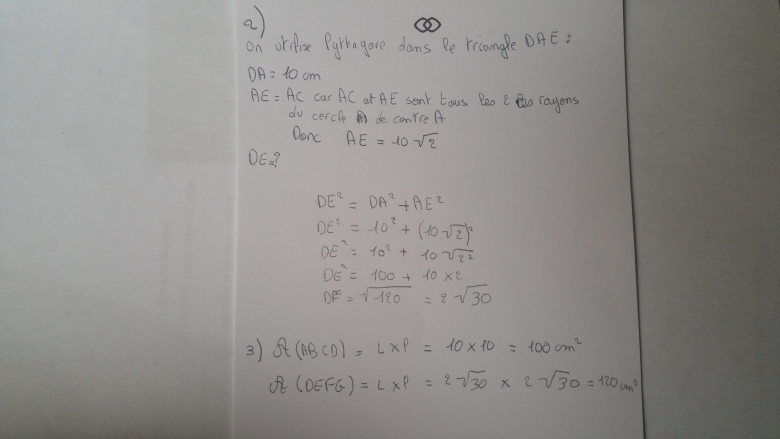 2)
On utilise Pythagore dans le triangle DAE :
DA = 10 cm
AE = AC car AC et AE sont tous les 2 les rayons
du cercle de centre A
Donc AE = 10√2
DE = ?
DE² = DA² + AE²
DE² = 10² + (10√2)²
DE² = 10² + 10√2²
DE² = 100 + 10 × 2
DE = √120 = 2√30
3) A (ABCD) = L × l = 10 × 10 = 100 cm²
A (DEFG) = L × l = 2√30 × 2√30 = 120 cm²